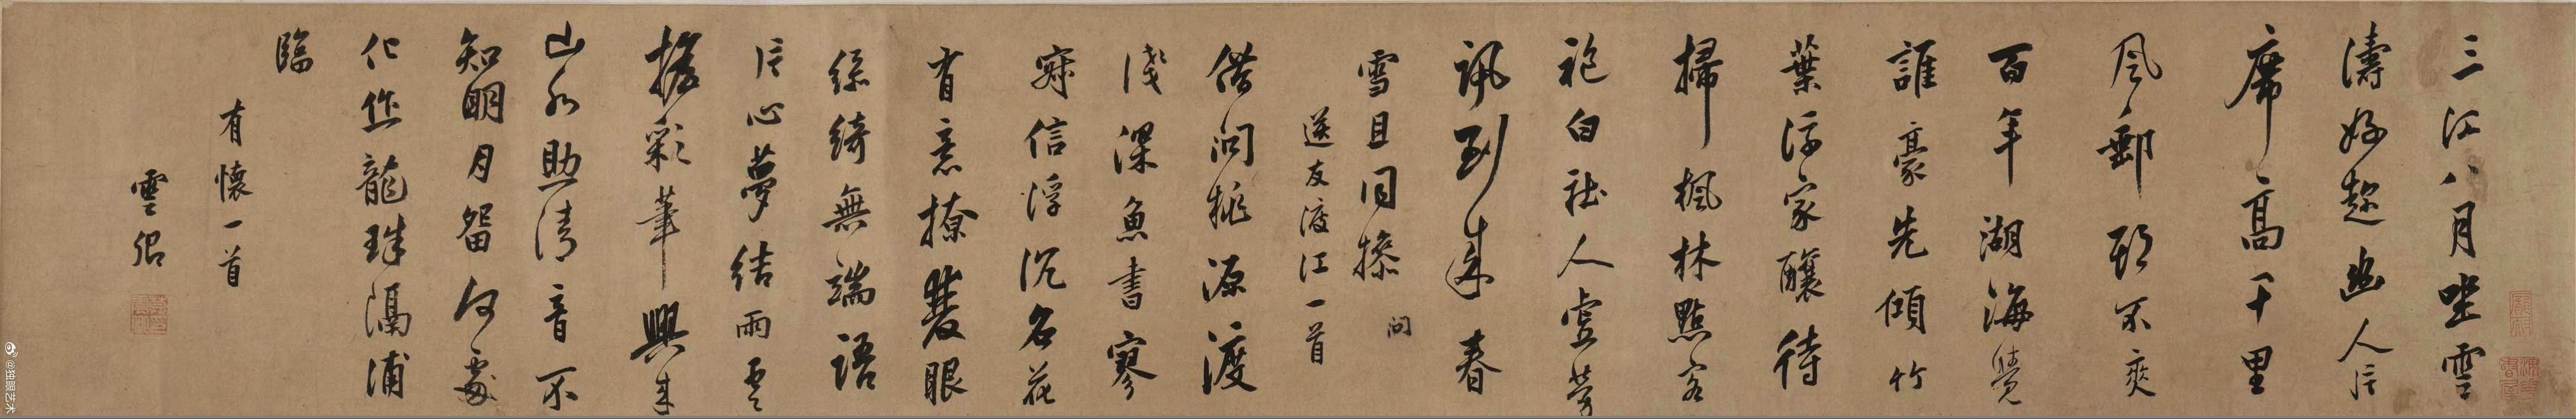 三江八月坐雪
濤好趁幽人片
席高千里
風郵頭不爽
百年湖海覺
誰豪先傾竹
葉浮家釀待
掃楓林點客
袍白社人虛勞
訊到來春
雪且同撡 問
送友渡江一首
借問桃源渡
淺深魚書寥
寂信浮沉名花
有意撩雙眼
綠綺無端語
片心夢結雨雲
搖彩筆興來
山水助清音不
知明月留何處
化作龍珠隔浦
臨
有懷一首
雲卿
@独眼艺术